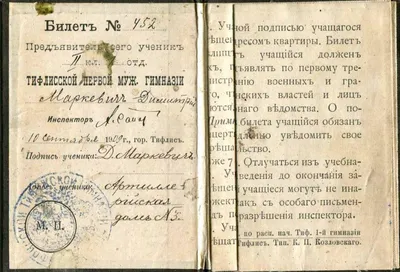 Билетъ № 452
Предъявитель сего ученикъ
II кл. отд.
ТИФЛИССКОЙ ПЕРВОЙ МУЖ. ГИМНАЗІИ
Маркевичъ Димитрій
Инспекторъ
10 сентября гор. Тифлисъ.
Подпись ученика: Д. Маркевичъ
ученика: Артилле
рійская
домъ №3.
М. П.
учной подписью учащагося
ресомъ квартиры. Билетъ
учащійся долженъ
ъявлять по первому тре
нистрацію военныхъ и гра
нскихъ властей и лицъ
наго вѣдомства. О по
билета учащійся обязанъ
уведомить свое
льство.
7. Отлучаться изъ учебна
ведения до окончанія за
учащіеся могутъ не ина
какъ съ особаго письмен
разрѣшенія инспектора.
по расп. нач. Тиф. 1-й гимназіи
Тифлисъ. Тип. К. П. Козловскаго.